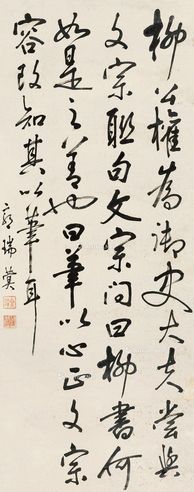 柳公權為御史大夫嘗與
文宗聯句文宗問曰柳書何
如是之善也曰筆以心正文宗
容改知其以筆耳
瑞冀